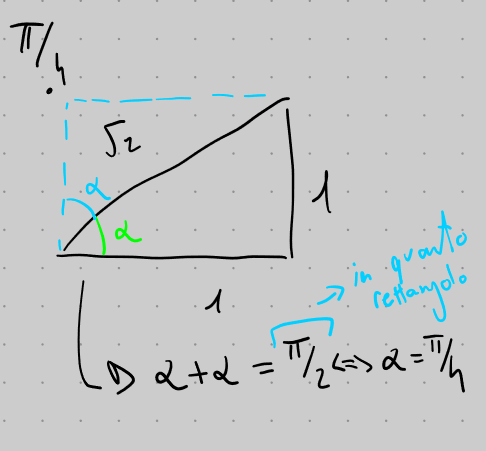 π/4
√2
α
α
1
1
in quanto
rettangolo
α + α = π/2 <=> α = π/4